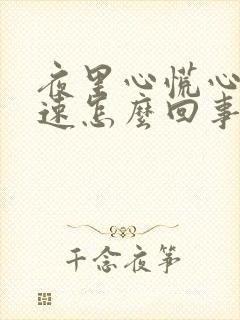 夜里心慌心
速怎麽回事
千念夜筝